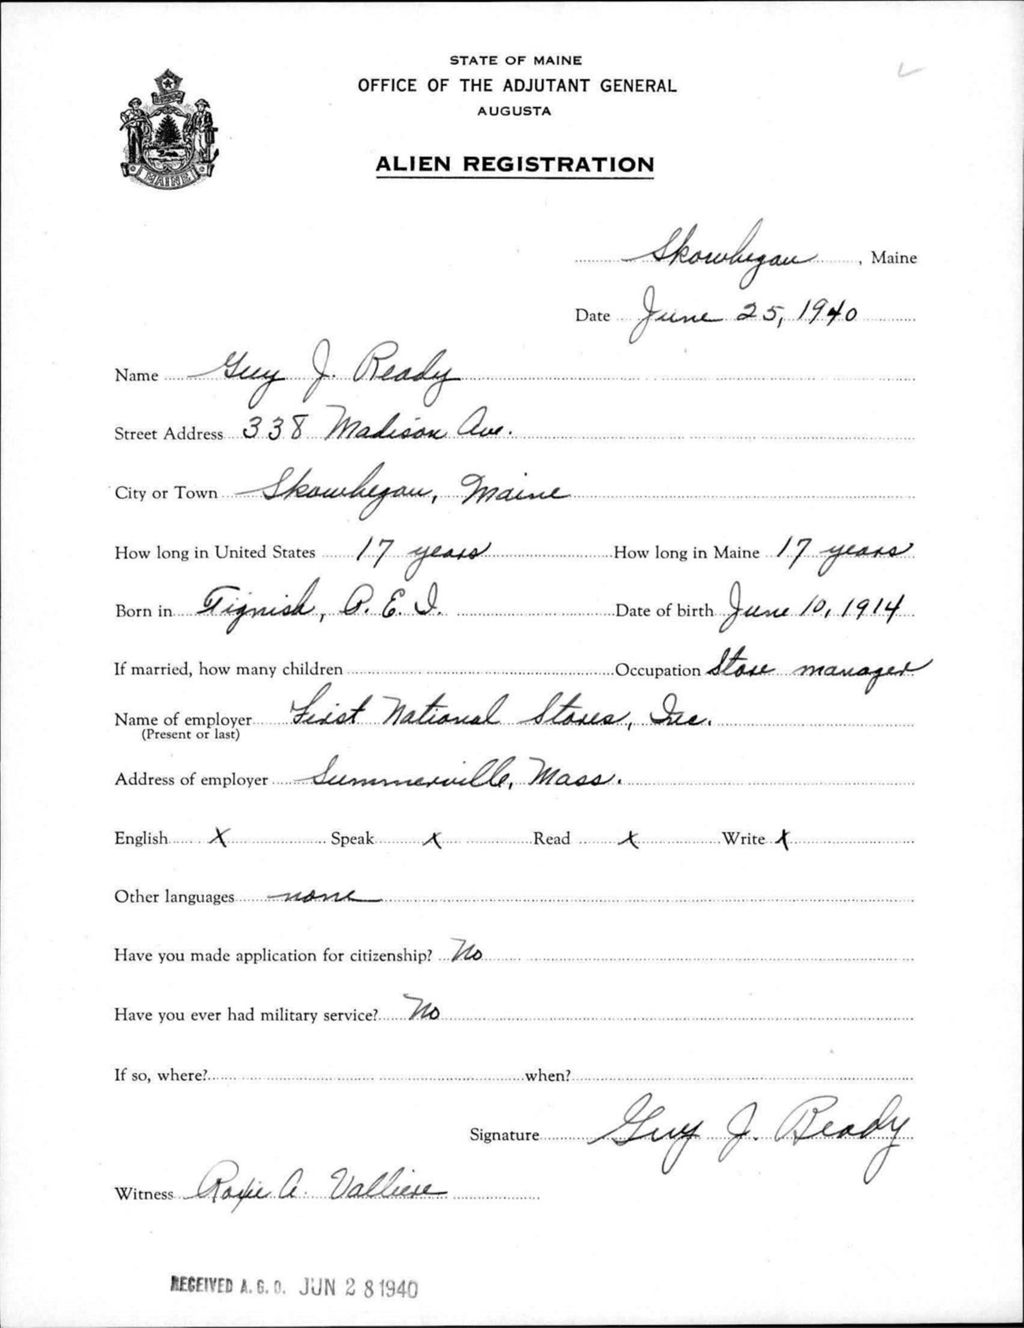 STATE OF MAINE
OFFICE OF THE ADJUTANT GENERAL
AUGUSTA
ALIEN REGISTRATION
MAINE
Skowhegan, Maine
Date June 25, 1940
Name Guy J. Ready
Street Address 338 Madison Ave.
City or Town Skowhegan, Maine
How long in United States 17 years How long in Maine 17 years
Born in Tignish, P. E. I. Date of birth June 10, 1914
If married, how many children Occupation Store manager
Name of employer First National Stores, Inc.
(Present or last)
Address of employer Summerville, Mass.
English X Speak X Read X Write X
Other languages none
Have you made application for citizenship? No
Have you ever had military service? No
If so, where? when?
Signature Guy J. Ready
Witness Roxie A. Valliere
RECEIVED A. G. O. JUN 28 1940